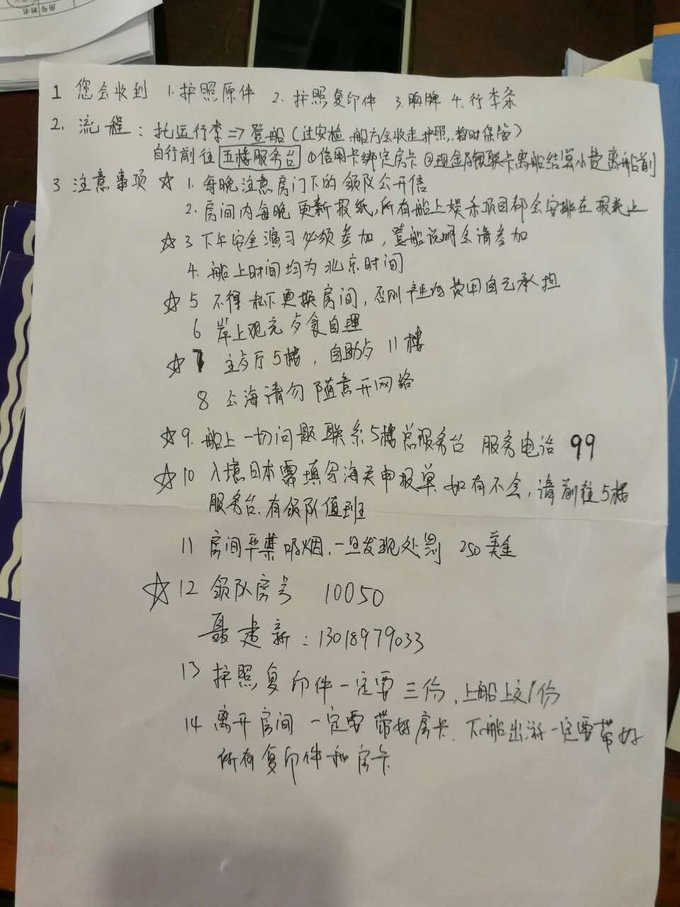 1 您会收到 1.护照原件 2. 护照复印件 3.胸牌 4.行李条
2. 流程: 托运行李=>登船(过安检,船方会收走护照,暂时保管)
自行前往 五楼服务台 ①信用卡绑定房卡 ②现金 离船结算
3 注意事项 ☆ 1. 每晚注意房门下的领队公开信
2. 房间内每晚更新报纸,所有船上娱乐项目都会安排在报表上
☆3 下午安全演习必须参加,登船说明会请参加
4. 船上时间均为北京时间
☆5 不得私下更换房间,否则产生的费用自己承担
6 岸上观光 夕食自理
☆7 主夕厅5楼,自助夕 11楼
8 公海请勿随意开网络
☆9.船上一切问题联系5楼总服务台 服务电话 99
☆10 入境日本需填写海关申报单 如有不会,请前往5楼
服务台.有领队值班
11 房间严禁吸烟.一旦发现处罚 250美金
☆12 领队房号 10050
聂建新:13018979033
13 护照复印件一定要三份,上船上交1份
14 离开房间 一定要带好房卡.下船出游一定要带好
所有复印件和房卡